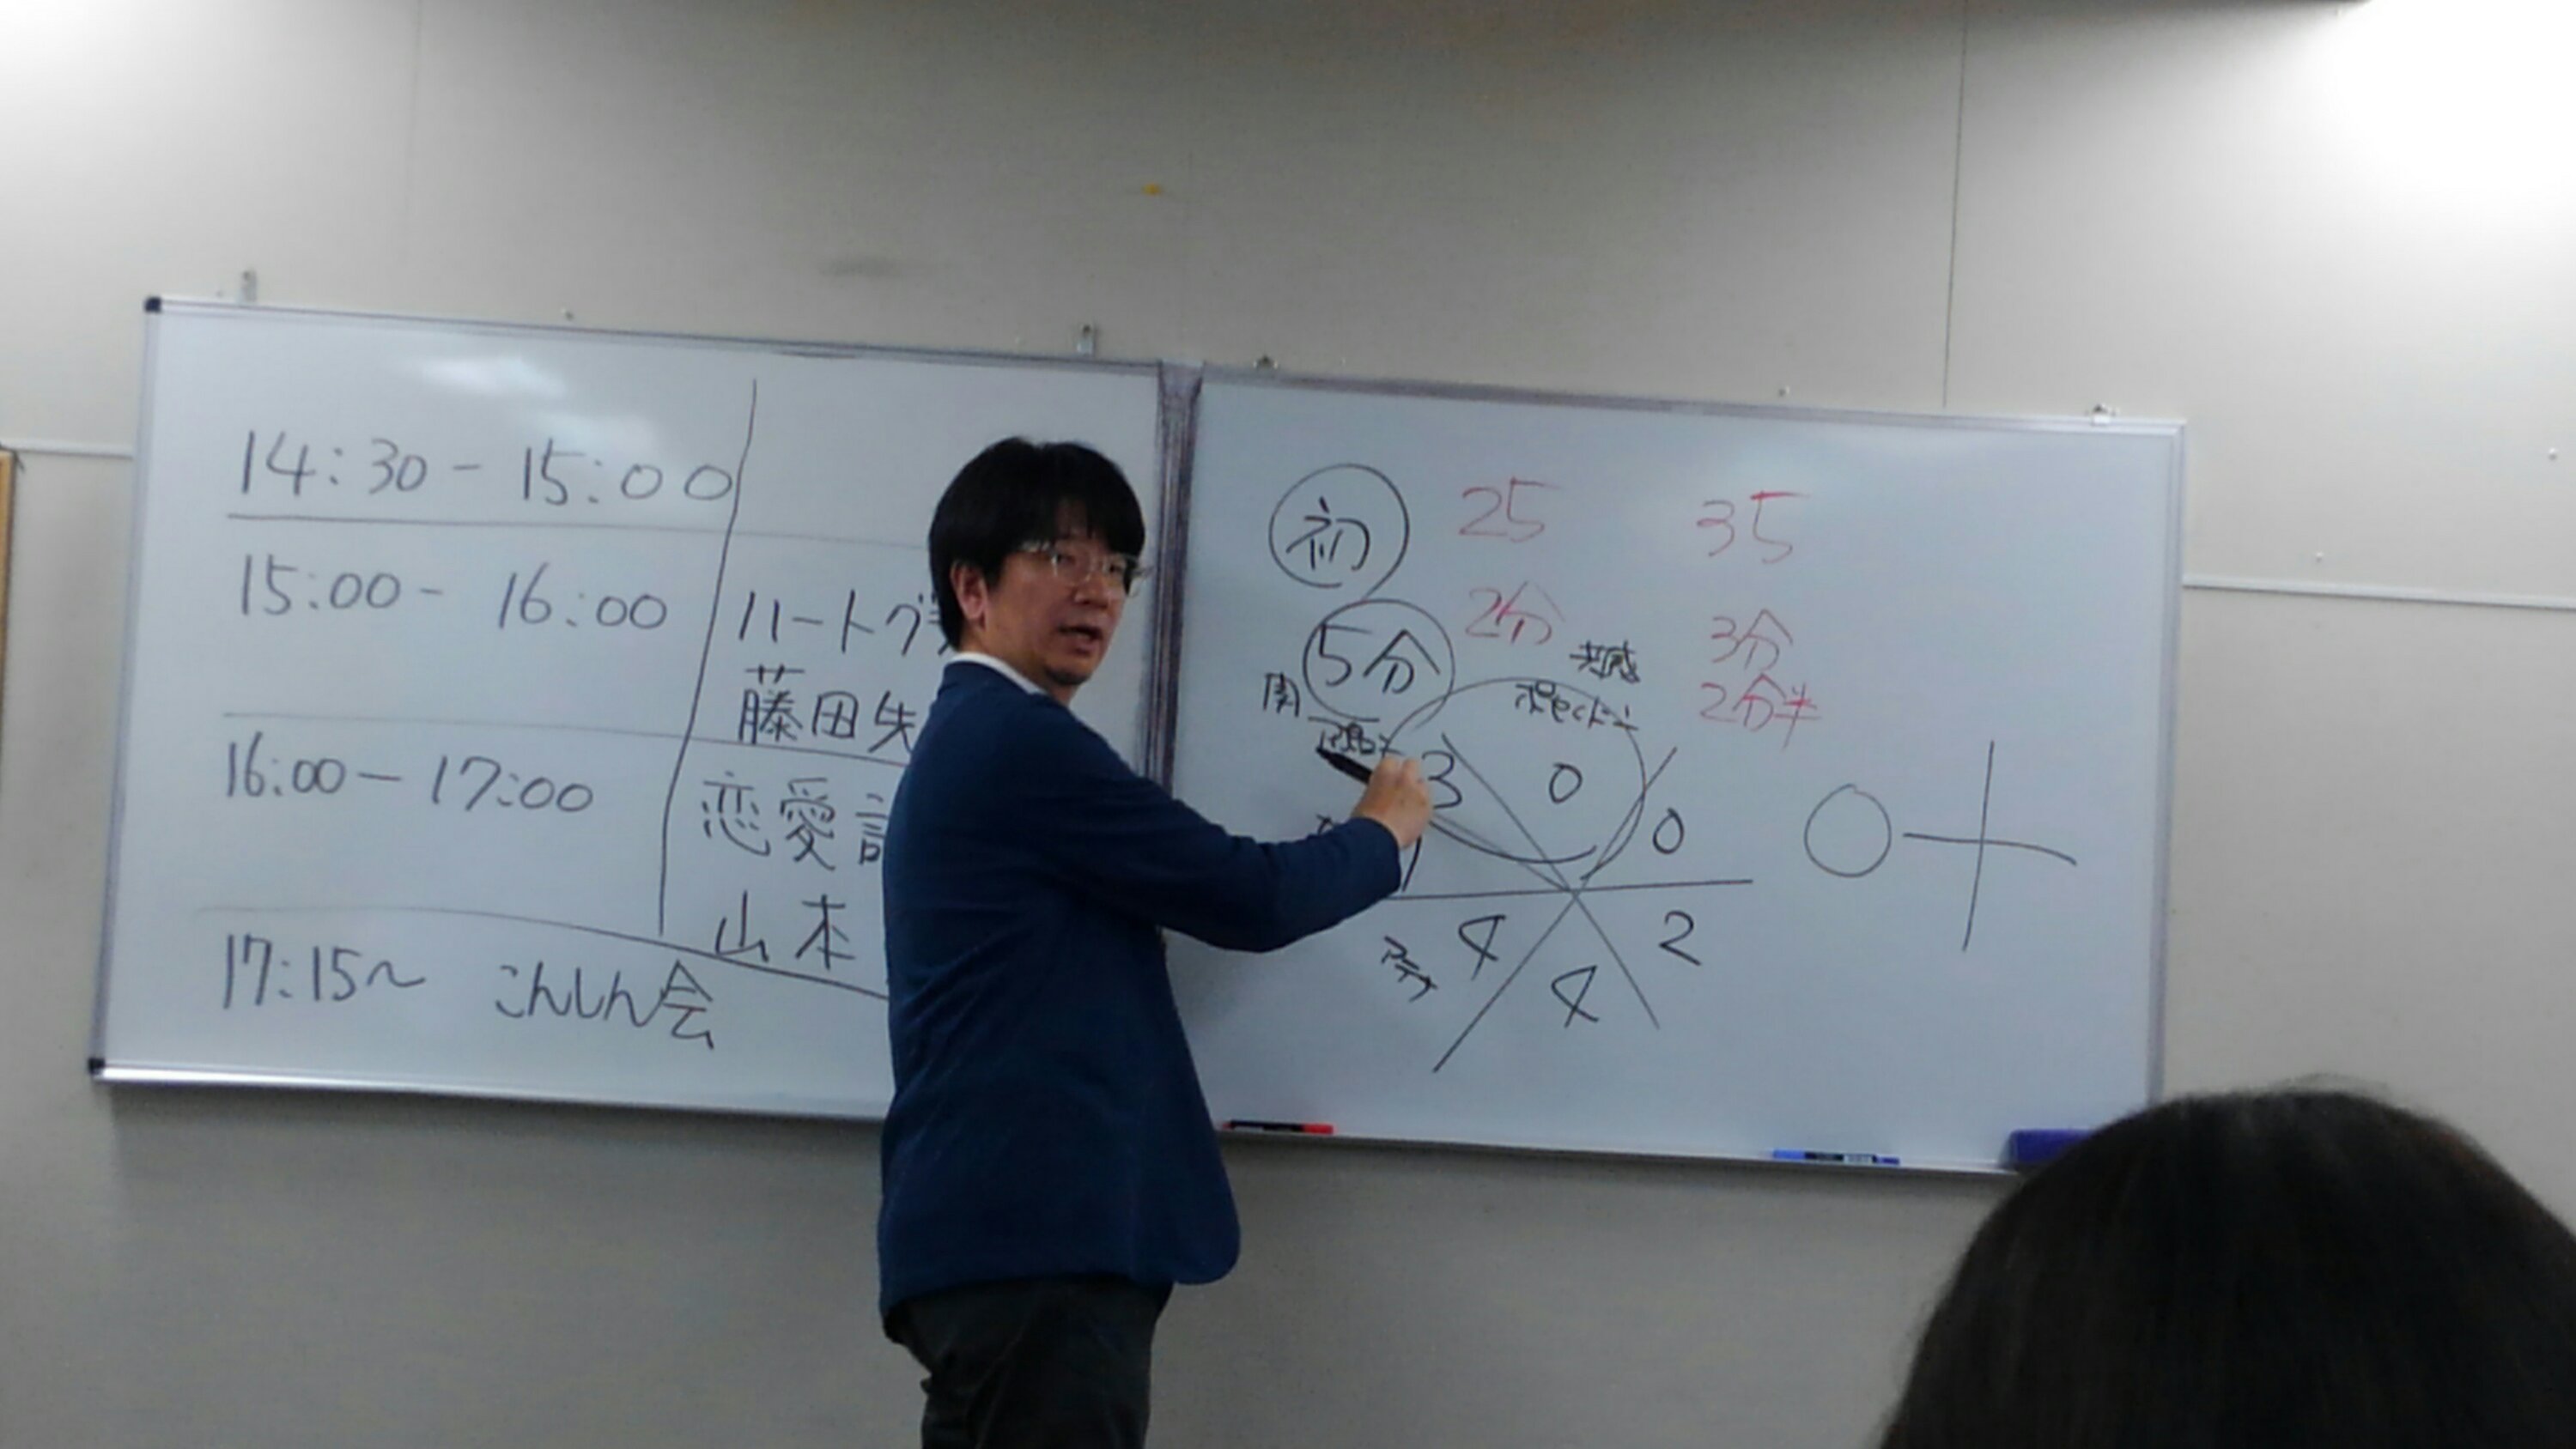 14:30 - 15:00
15:00 - 16:00
ハートグ
藤田先
16:00 - 17:00
恋愛
山本
17:15〜 こんしん会
初 25 35
5分 2分 3分
共感
2分半
ポセイドン
関
3 0 0
4 4 2
アテナ